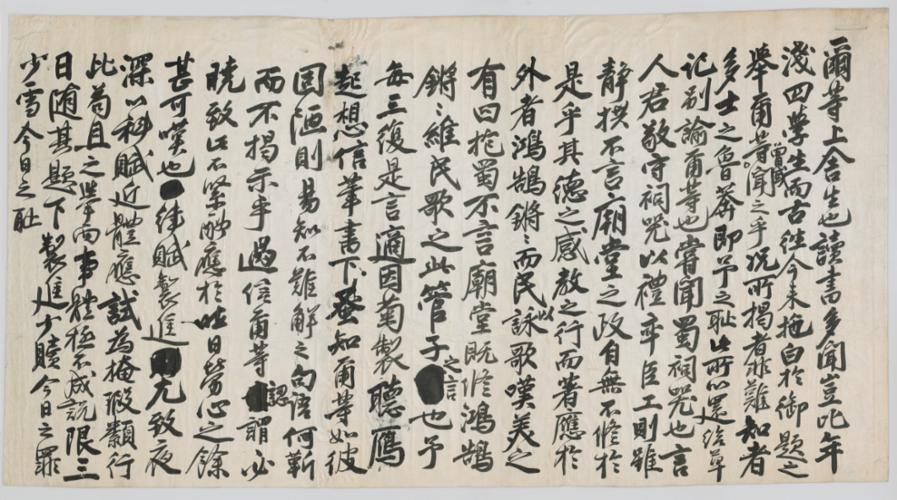 爾等上舍生也讀書多聞豈比年
淺四學生而古往今來拖白於御題之
擧爾等曾或聞之乎況所揭者非難知者
多士之魯莽即予之恥此所以還給草
记別諭爾等也嘗聞蜀祠器也言
人君敬守祠器以禮率臣工則雖
靜拱不言廟堂之政自無不修於
是乎其德之感教之行而著應於
外者鴻鵠鏘〻而民以詠歌嘆美之
有曰抱蜀不言廟堂既修鴻鵠
鏘〻維民歌之此管子之言也予
每三復是言適因菊製聽鴈
起想信筆書下蚤知爾等如彼
固陋則易知不難解之句語何靳
而不揭示乎過信爾等認謂必
曉致此不緊酬應於吐日勞心之餘
甚可嘆也律賦製進尤致夜
深以科賦近體應試為掩瑕纇行
此苟且之學而事體極不成說限三
日隨其題下製進少贖今日之罪
少雪今日之恥